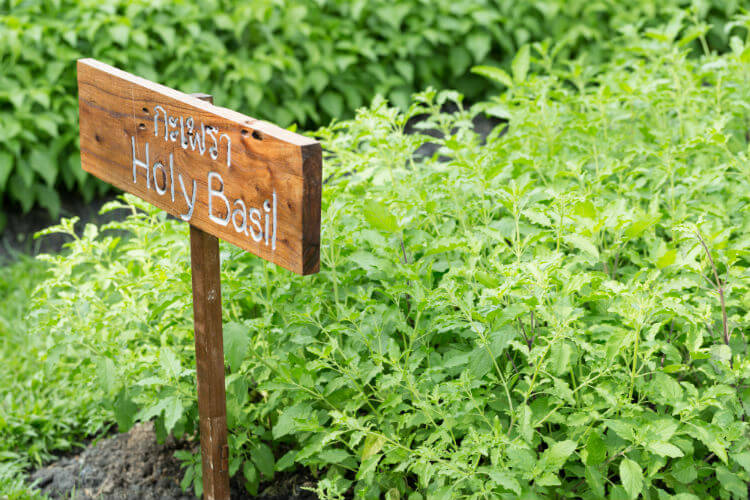 กะเพรา
Holy Basil